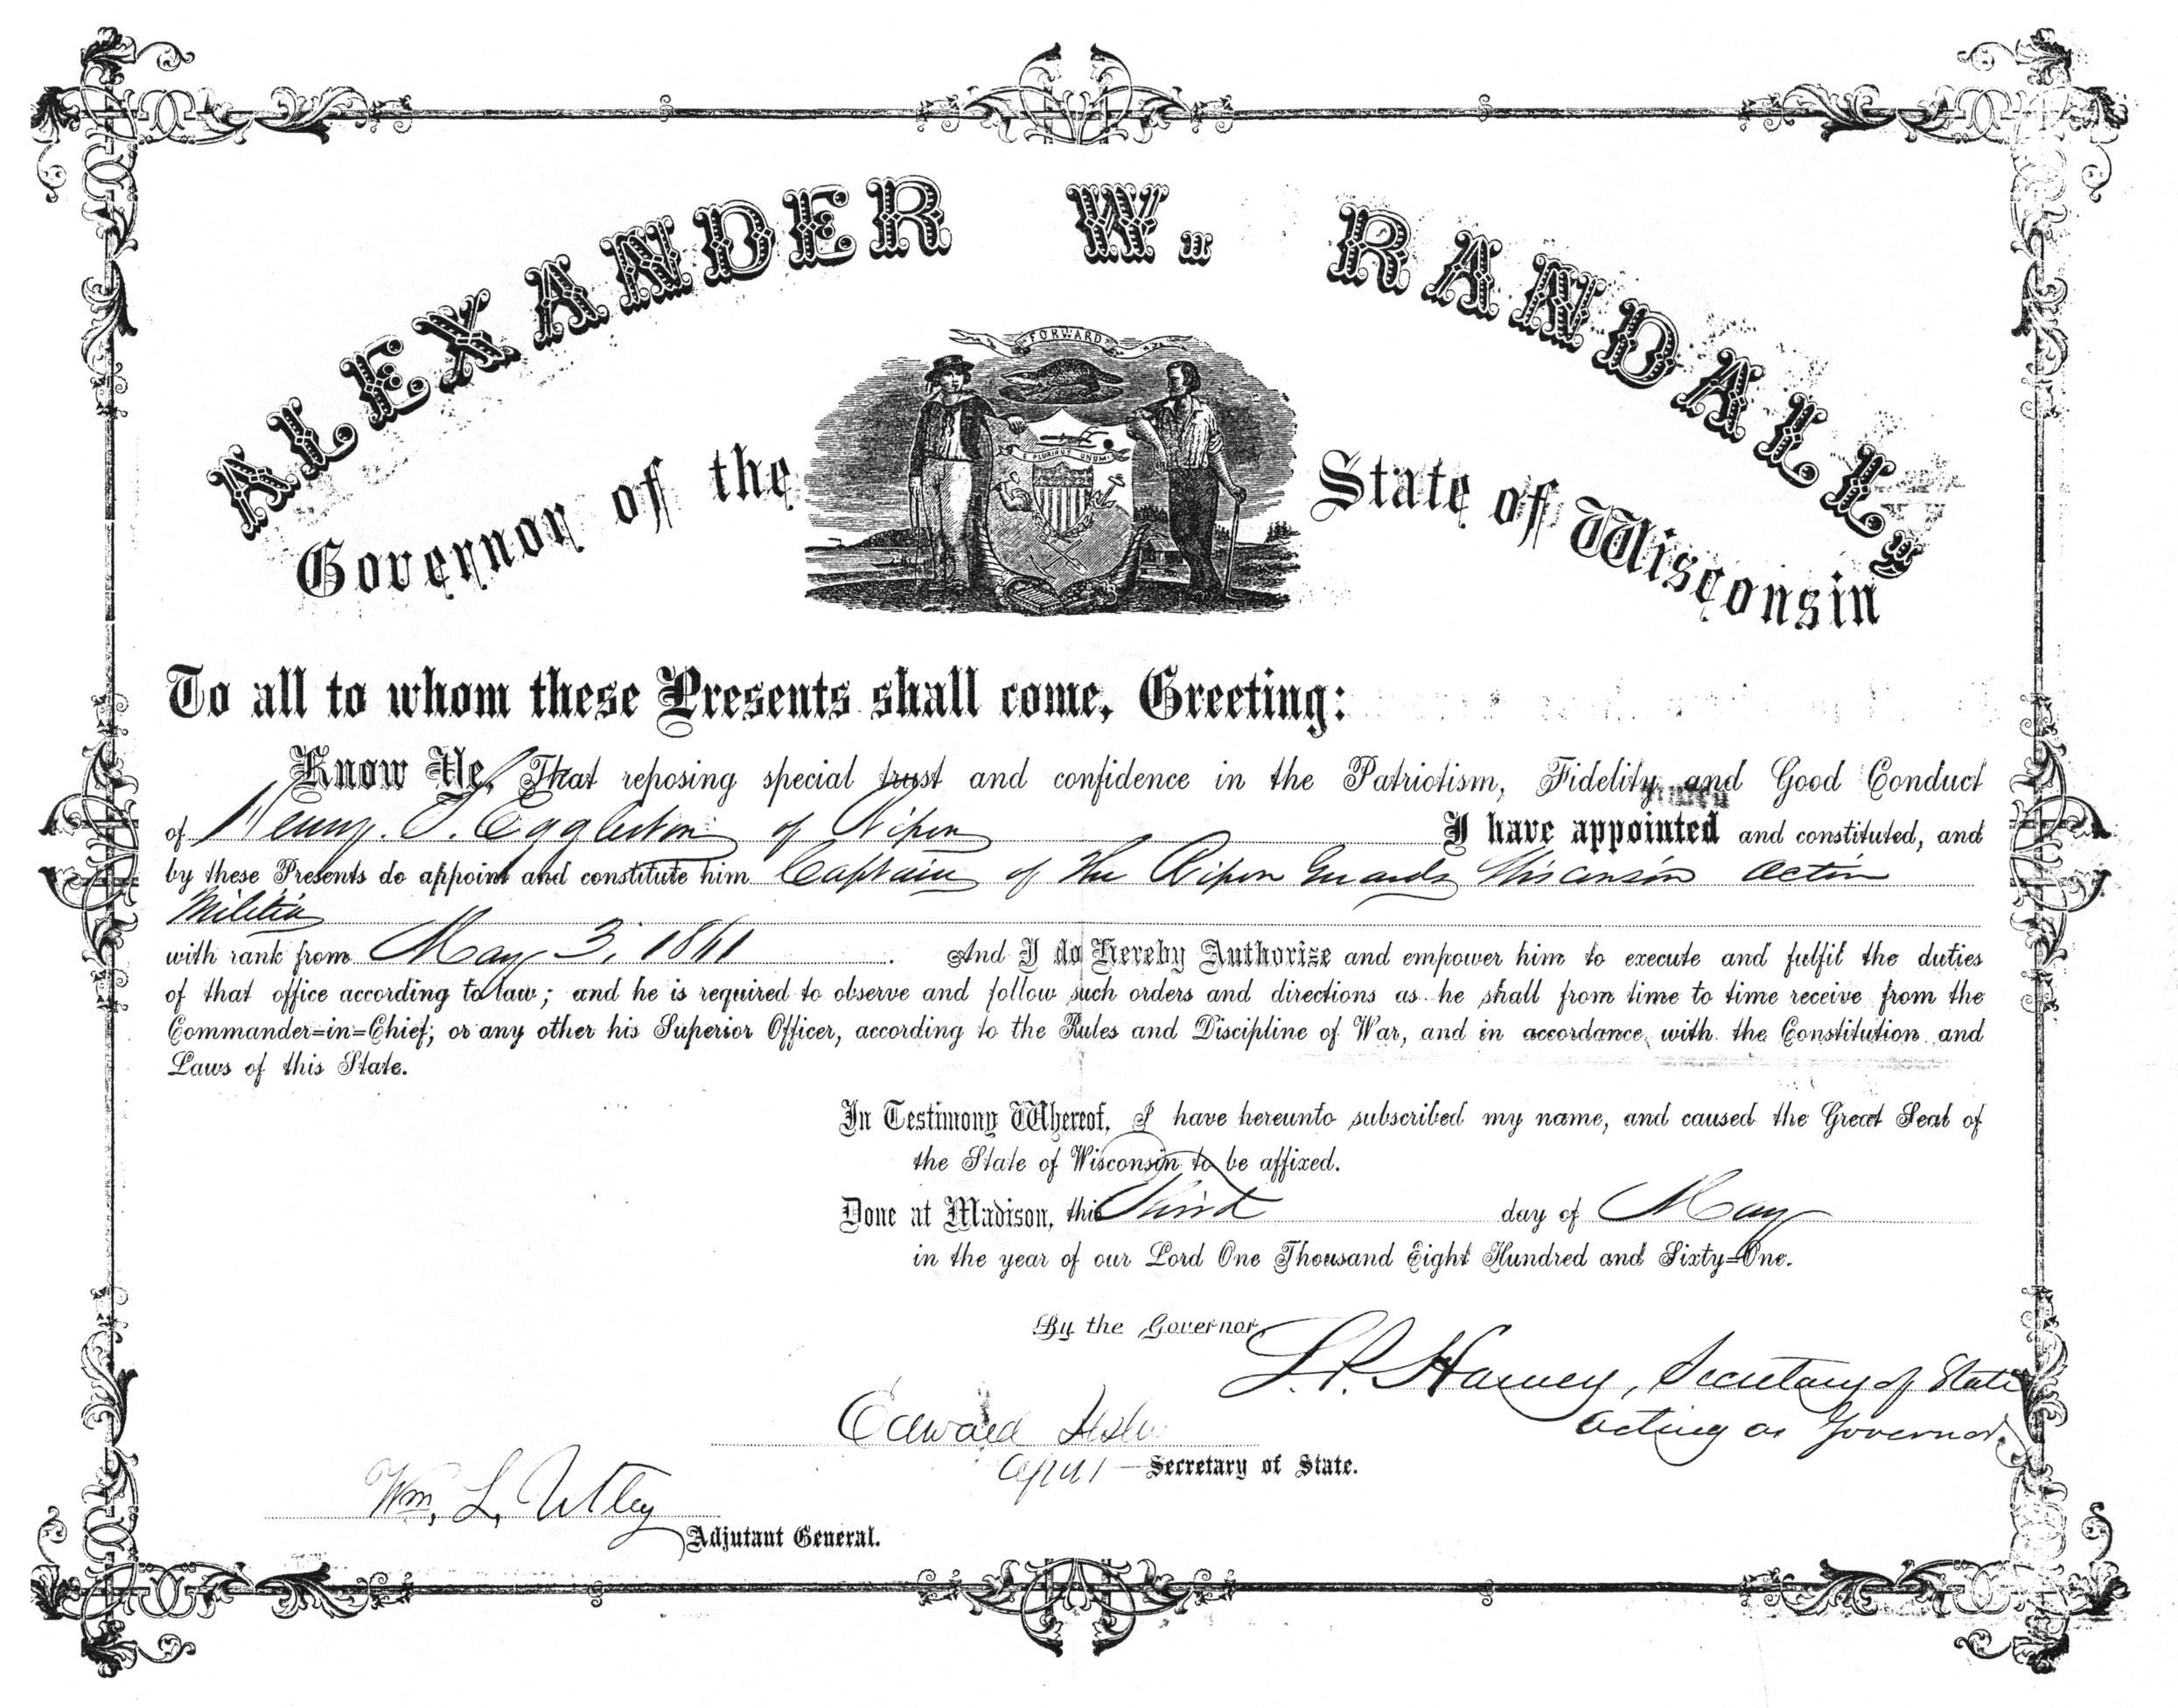 ALEXANDER W. RANDALL,
Governor of the State of Wisconsin
FORWARD
E PLURIBUS UNUM
To all to whom these Presents shall come, Greeting:
Know Ye, That reposing special trust and confidence in the Patriotism, Fidelity and Good Conduct
of Henry. S. Eggleston of Ripon I have appointed and constituted, and
by these Presents do appoint and constitute him Captain of the Ripon Guards Wisconsin Active
Militia
with rank from May 3, 1861. And I do Hereby Authorize and empower him to execute and fulfil the duties
of that office according to law; and he is required to observe and follow such orders and directions as he shall from time to time receive from the
Commander=in=Chief; or any other his Superior Officer, according to the Rules and Discipline of War, and in accordance with the Constitution and
Laws of this State.
In Testimony Whereof, I have hereunto subscribed my name, and caused the Great Seal of
the State of Wisconsin to be affixed.
Done at Madison, this Third day of May
in the year of our Lord One Thousand Eight Hundred and Sixty=One.
By the Governor,
L. P. Harvey, Secretary of State
Acting as Governor.
Edward
Secretary of State.
Wm. L. Utley
Adjutant General.